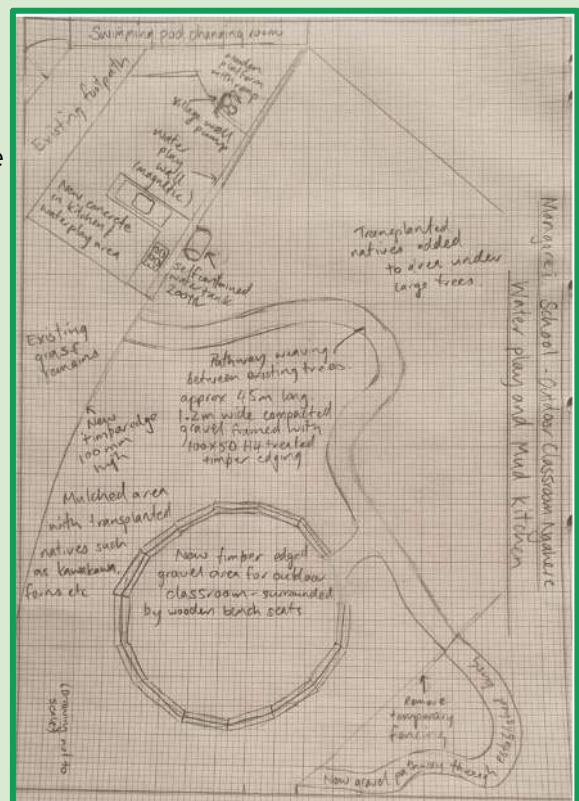 Swimming pool changing room
Existing footpath
wooden
platform
with ramp
village well
pump
water
play
wall
(magnetic)
New concrete
in kitchen/
waterplay area
self contained
water tank
200 ltr
Transplanted
natives added
to area under
large trees.
Mangorei School - Outdoor Classroom Ngahere
Water play and Mud Kitchen
Existing
grass
remains
New
timber edge
100mm
high
Pathway weaving
between existing trees.
approx 45m long.
1.2m wide compacted
gravel framed with
100x50 H4 treated
timber edging
Mulched area
with transplanted
natives such
as kawakawa,
ferns etc
New timber edged
gravel area for outdoor
classroom - surrounded
by wooden bench seats
(Drawing not to
scale)
Remove
temporary
fencing
New gravel pathway through
e